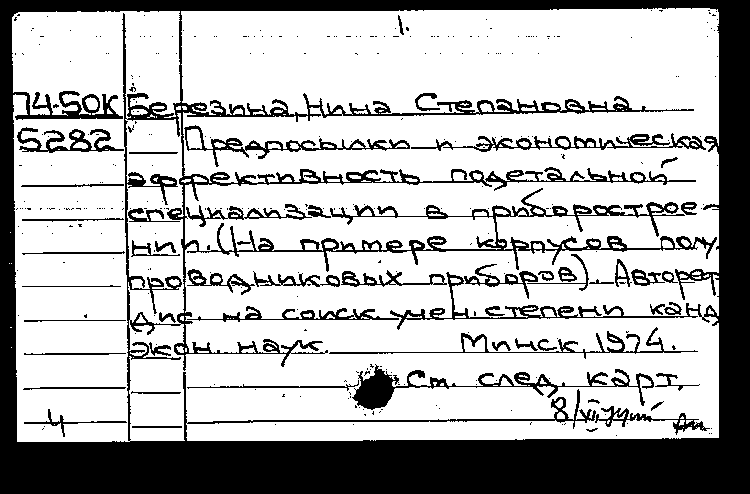 1.
74-50К Березина, Нина Степановна.
5282 Предпосылки и экономическая
эффективность подетальной
специализации в приборострое-
нии. (На примере корпусов полу-
проводниковых приборов). Автореф
дис. на соиск. учен. степени канд
экон. наук. Минск, 1974.
См. след. карт.
4 8/XII